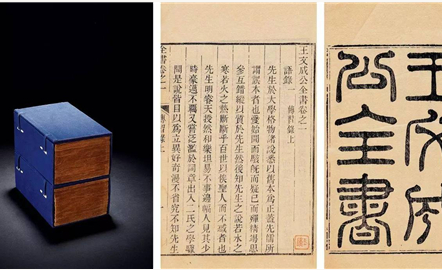 王文成
公全書
王文成公全書卷之一
語錄一 傳習錄上
先生於大學格物諸說悉以舊本為正蓋先儒所
謂誤本者也愛始聞而駭既而疑已而殫精竭思
參互錯綜以質於先生然後知先生之說若水之
寒若火之熱斷斷乎百世以俟聖人而不惑者也
先生明睿天授然和樂坦易不事邊幅人見其少
時豪邁不羈又嘗泛濫於詞章出入二氏之學驟
聞是說皆目以為立異好奇漫不省究不知先生
全書卷之一